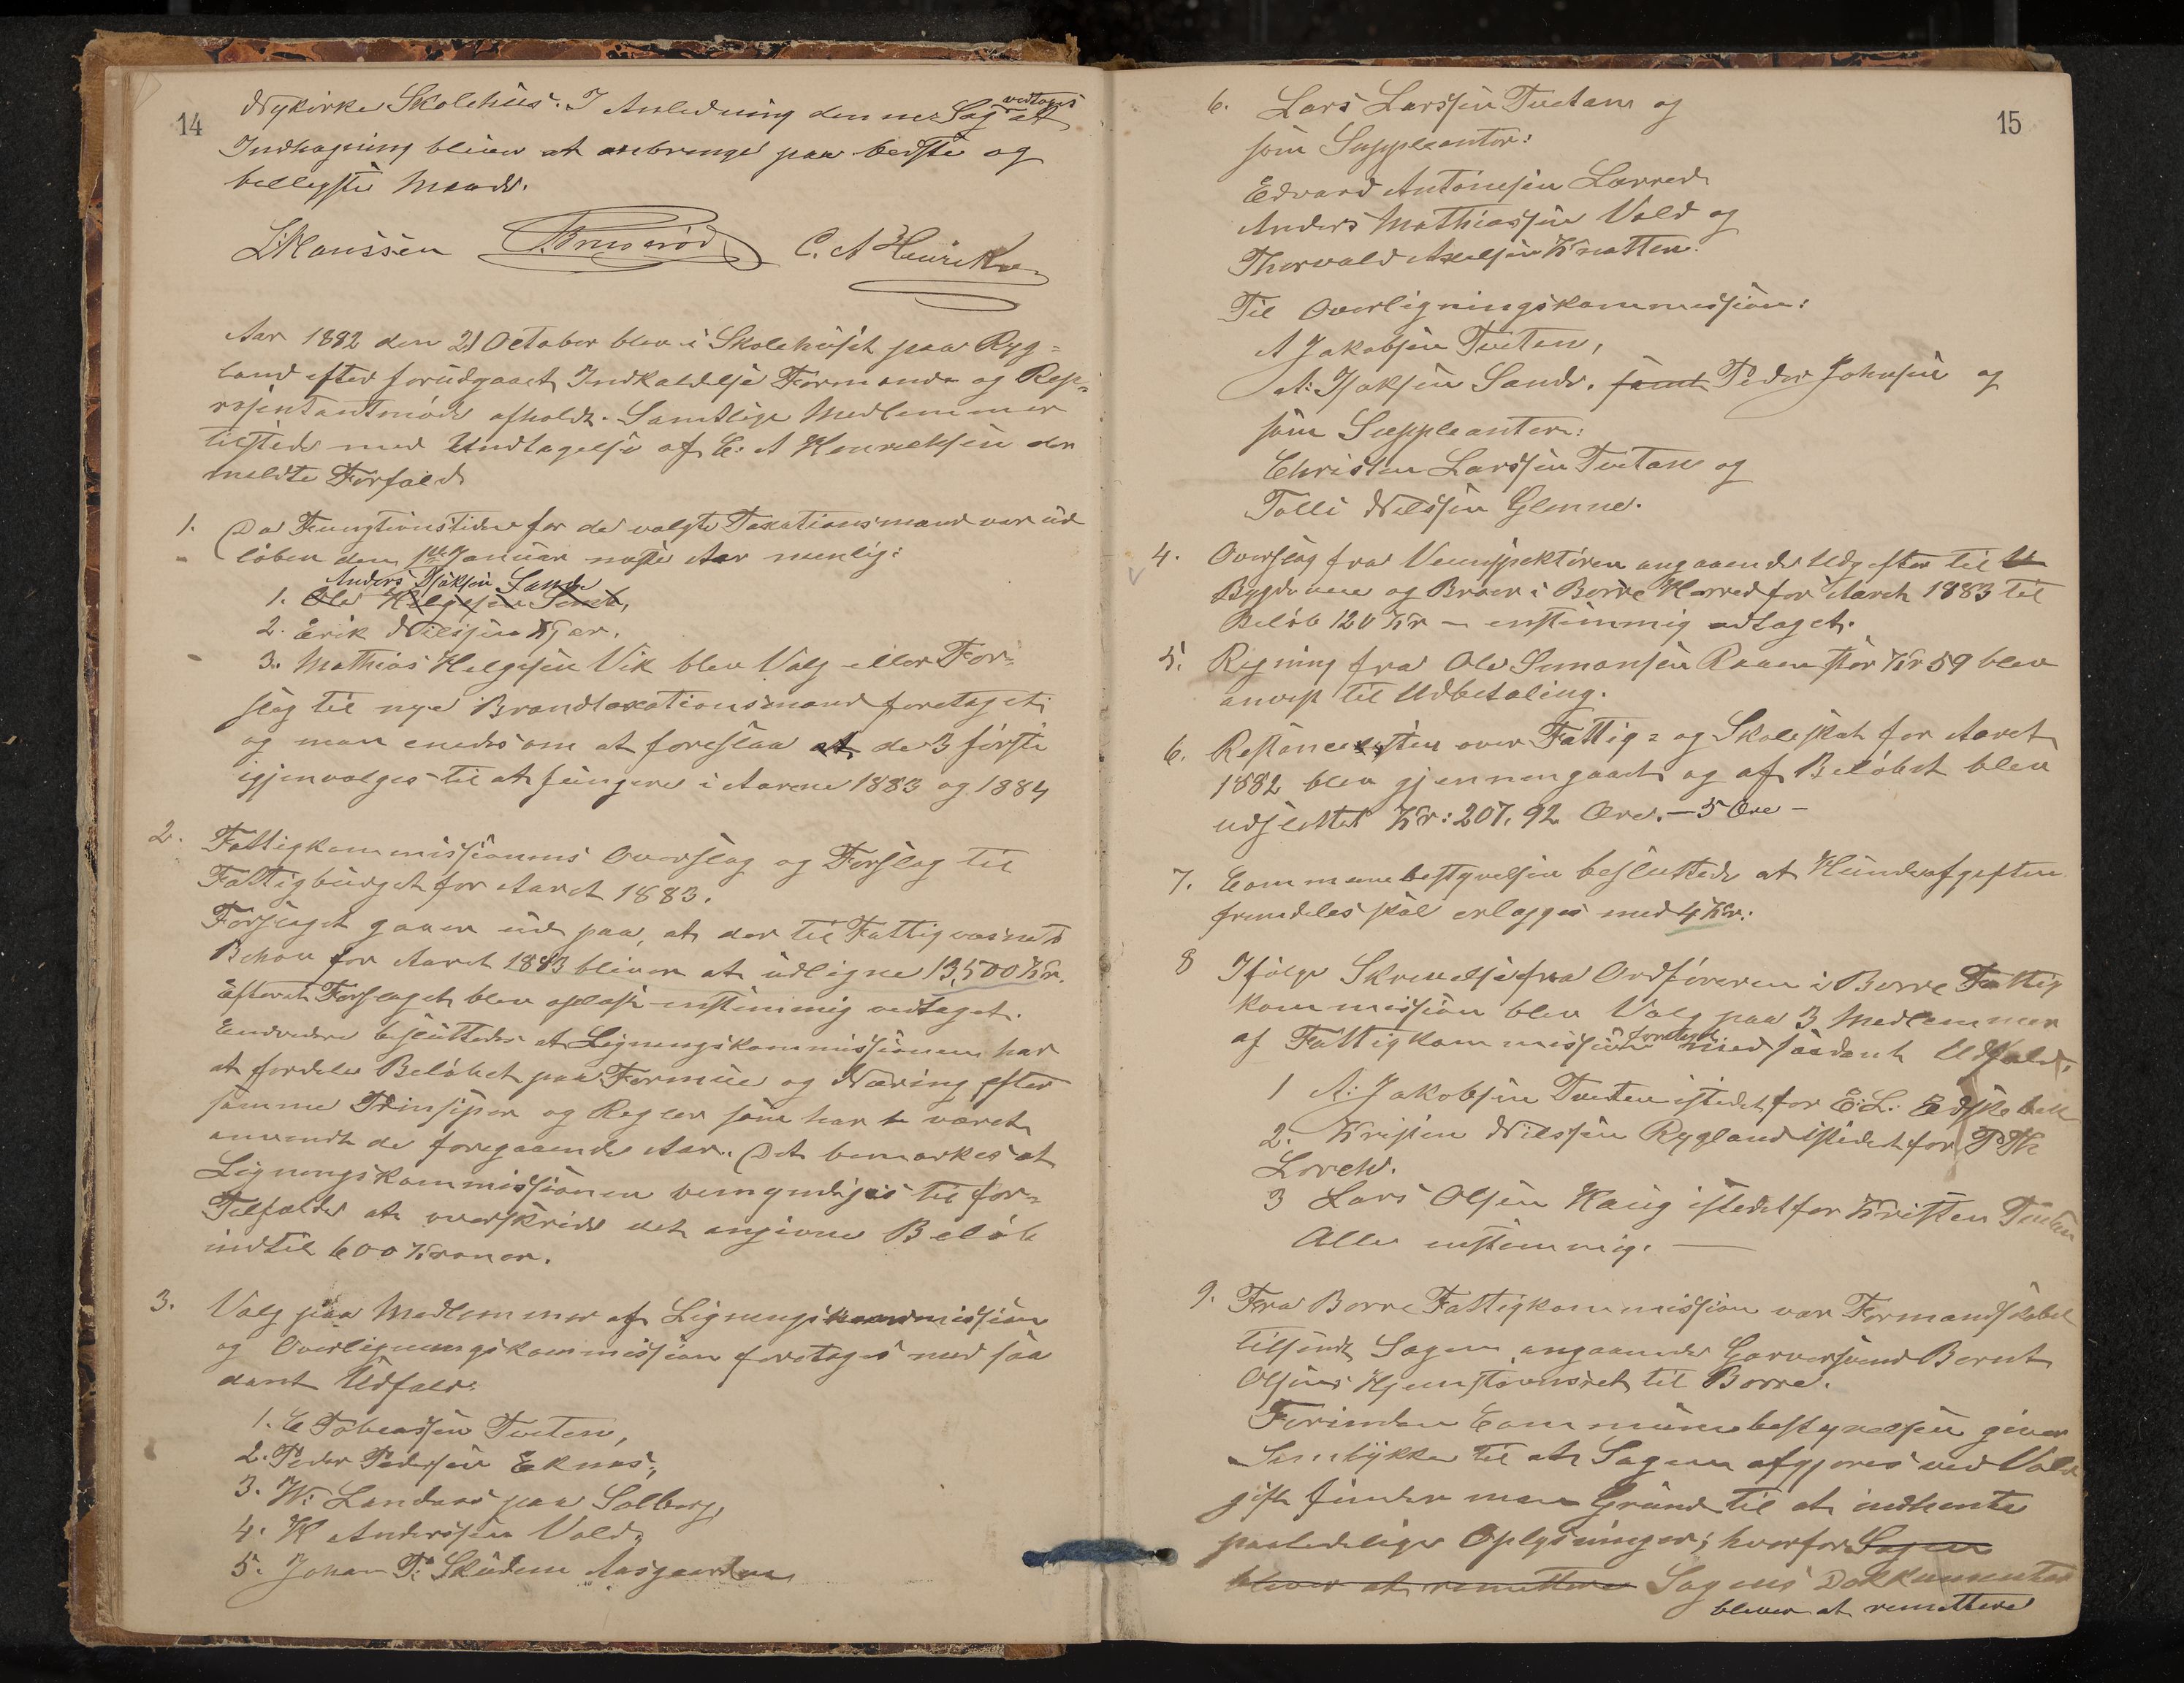 14
Nykirke Skolehus. I Anledning denne Sag vedtoges at
Indhegning bliver at anbringe paa bedste og
billigste Maade.
L Hanssen C. A Henriksen
Aar 1882 den 21 October blev i Skolehuset paa Ryg=
land efter forudgaaet Indkaldelse Formands og Rep=
resentantmøde afholdt. Samtlige Medlemmer
tilstede med Undtagelse af C. A Henriksen der
meldte Forfald
1. Da Fungtionstiden for de valgte Taxationsmænd var ud
løben den 1ste Januar næste Aar nemlig:
Anders Isaksen Sande
1. Ole Helgesen Sande,
2. Erik Nilsen Kjær.
3. Mathias Helgesen Vik blev Valg eller For=
slag til nye Brandtaxationsmænd foretaget
og man enedes om at foreslaa at de 3 første
igjenvælges til at fungere i Aarene 1883 og 1884
2. Fattigkommissionens Overslag og Forslag til
Fattigbudget for Aaret 1883.
Forslaget gaaer ud paa, at der til Fattigvæsnets
Behov for Aaret 1883 bliver at udligne 13,500 Kr.
Efterat Forslaget blev oplæst enstemmig vedtaget.
Endvidere besluttedes at Ligningskommissionen har
at fordele Beløbet paa Formue og Næring efter
samme Prinsiper og Regler som har været
anvendt de foregaaende Aar. Det bemærkes at
Ligningskommissionen bemyndiges til for=
Tilfælde at overskride det angivne Beløb
indtil 600 Kroner.
3. Valg paa Medlemmer af Ligningskommission
og Overligningskommission foretoges med saa
dant Udfald:
1. C Tobiassen Tveten,
2. Peder Pedersen Eknes,
3. W: Landaas paa Solberg,
4. H Anderssen Vold,
5. Johan P: Skudem Aasgaarden
15
6. Lars Larssen Tveten og
som Suppleanter:
Edvard Antonsen Lørred
Anders Mathiassen Vold og
Thorvald Axelsen Knatten.
Til Overligningskommission:
A Jakobsen Tveten,
A: Isaksen Sande. samt Peder Johnsen og
som Suppleanter:
Christen Larssen Tveten og
Tolli Nilssen Glenne.
4. Overslag fra Veiinspektøren angaaende Udgifter til V
Bygdeveie og Broer i Borre Herred for Aaret 1883 til
Beløb 120 Kr — enstemmig vedtaget.
5. Regning fra Ole Simonsen Raaen stor Kr 59 blev
anvist til Udbetaling.
6. Restancelisten over Fattig= og Skoleskat for Aaret
1882 blev gjennemgaaet og af Beløbet blev
udslettet Kr: 207, 92 Øre. — 5 Øre —
7. Communebestyrelsen besluttede at Hundeafgiften
fremdeles skal erlægges med 4 Kr.
8 Ifølge Skrivelse fra Ordføreren i Borre Fattig
kommission blev Valg paa 3 Medlemmer
af Fattigkommission foretaget med saadant Udfald:
1 A: Jakobsen Tveten istedet for E: L:
2. Kristen Nilssen Rygland istedet for P Th
3 Lars Olsen Haug istedet for Kristen Tveten
Alle enstemmig. —
9. Fra Borre Fattigkommission var Formandskabet
tilsendt Sagen angaaende Garversvend Bernt
Olsens Hjemstavnsret til Borre.
Forinden Communebestyrelsen giver
Samtykke til at Sagen afgjøres ved Vold
gift finder man Grund til at indhente
paalidelige Oplysninger; hvorfor Sagen
bliver at remittere Sagens Dokkumenter
bliver at remittere